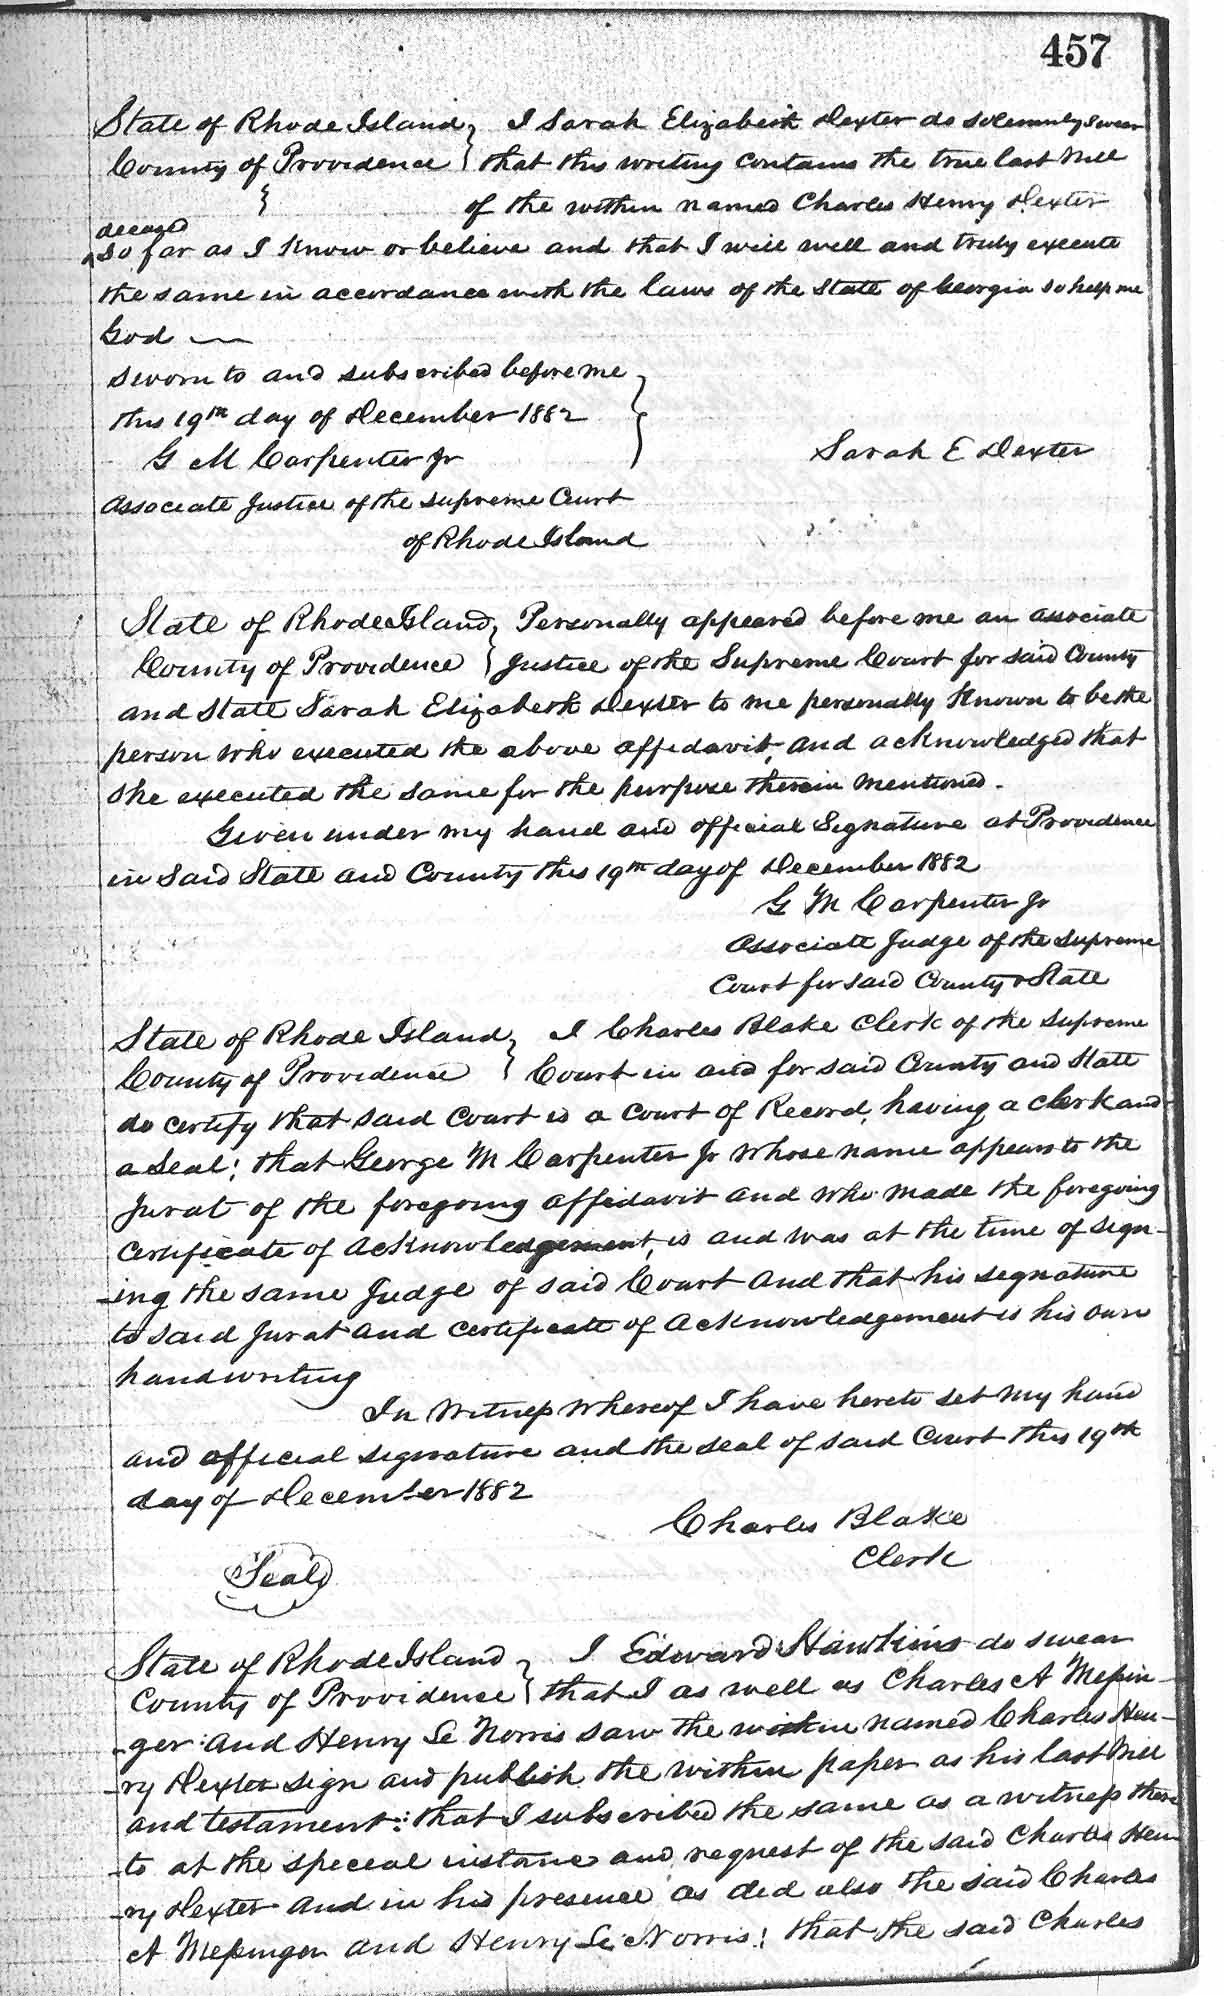 457
State of Rhode Island } I Sarah Elizabeth Dexter do solemnly swear
County of Providence } that this writing contains the true last Will
} of the within named Charles Henry Dexter
deceased
^ so far as I know or believe and that I will well and truly execute
the same in accordance with the laws of the State of Georgia so help me
God
Sworn to and subscribed before me
this 19th day of December 1882
G M Carpenter Jr
Sarah E Dexter
Associate Justice of the Supreme Court
of Rhode Island
State of Rhode Island } Personally appeared before me an associate
County of Providence } Justice of the Supreme Court for said County
and State Sarah Elizabeth Dexter to me personally known to be the
person who executed the above affidavit, and acknowledged that
she executed the same for the purpose therein mentioned.
Given under my hand and official Signature at Providence
in Said State and County this 19th day of December 1882
G M Carpenter Jr
Associate Judge of the Supreme
Court for said County & State
State of Rhode Island } I Charles Blake Clerk of the Supreme
County of Providence } Court in and for said County and State
do certify that said Court is a Court of Record, having a clerk and
a Seal; that George M Carpenter Jr whose name appears to the
Jurat of the foregoing affidavit and who made the foregoing
certificate of acknowledgement, is and was at the time of sign-
-ing the same Judge of said Court and that his signature
to said Jurat and certificate of acknowledgement is his own
handwriting
In Witness Whereof I have hereto set my hand
and official signature and the seal of said Court this 19th
day of December 1882
Charles Blake
Clerk
Seal
State of Rhode Island } I Edward Hawkins do swear
County of Providence } that I as well as Charles A Messin-
-ger and Henry Le Norris saw the within named Charles Hen-
-ry Dexter sign and publish the within paper as his last Will
and testament: that I subscribed the same as a witness there
-to at the special instance and request of the said Charles Hen-
-ry Dexter and in his presence as did also the said Charles
A Messinger and Henry Le Norris; that the said Charles